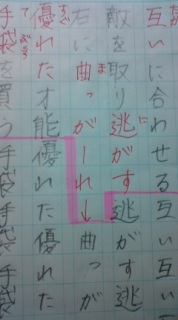 互いに合わせる互い
敵を取り逃がす逃がす逃
右に曲っがーれ↓曲っが
優れた才能優れた優れた
手袋を買う手袋手袋手袋